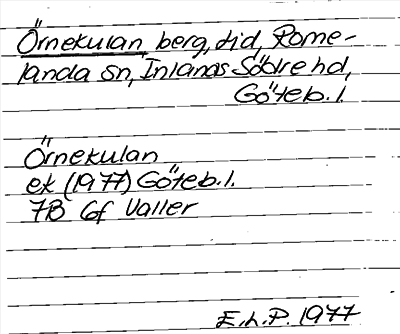 Örnekulan, berg, tid, Rome-
landa sn, Inlands Södre hd,
Göteb. l.
Örnekulan
ek (1977) Göteb. l.
7B 6f Valler
E.L.P. 1977